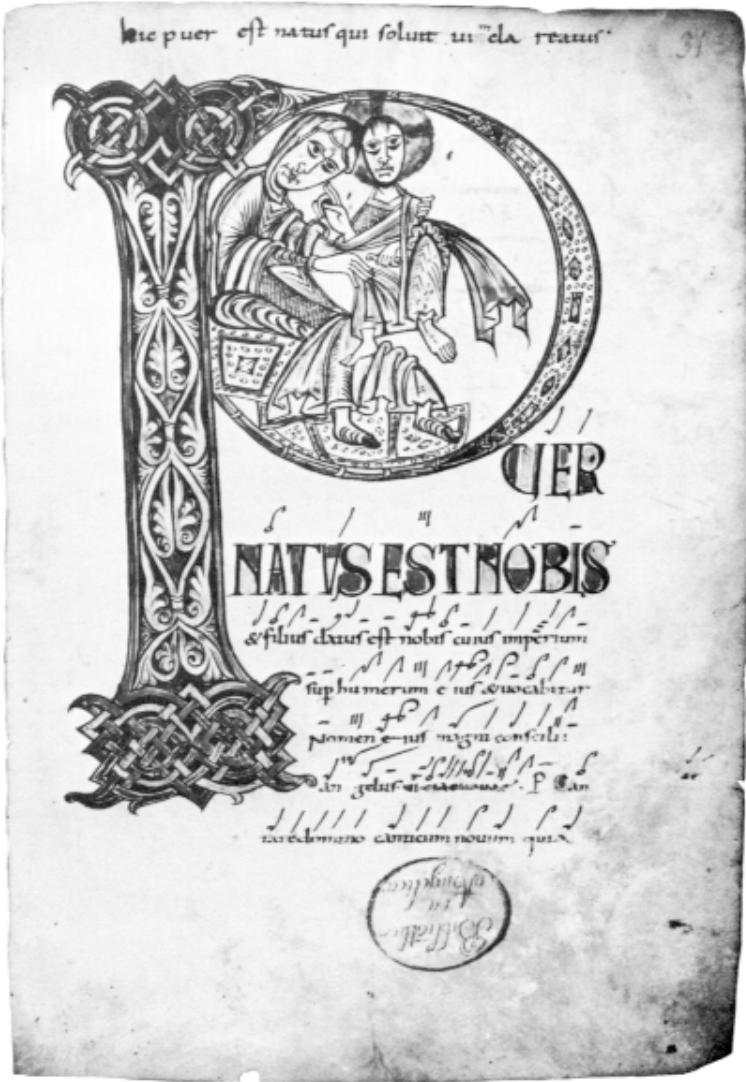 hic puer est natus qui soluit uincla reatus
31
PUER
NATUS EST NOBIS
& filius datus est nobis cuius imperium
sup humerum eius & uocabitur
Nomen eius magni consilii
angelus P Can
tate domino canticum nouum quia
Biblioth
Angelicae